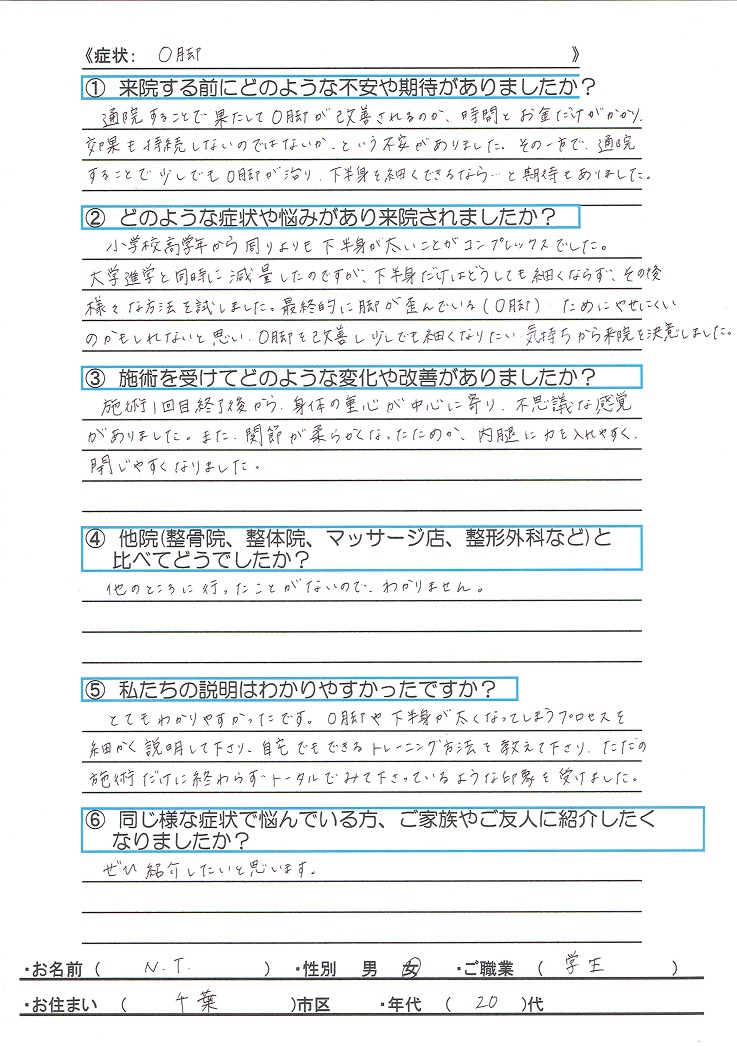 《症状： O脚 》
① 来院する前にどのような不安や期待がありましたか？
通院することで果たしてO脚が改善されるのか、時間とお金だけがかかり、
効果も持続しないのではないか、という不安がありました。その一方で、通院
することで少しでもO脚が治り、下半身を細くできるなら…と期待もありました。
② どのような症状や悩みがあり来院されましたか？
小学校高学年から周りよりも下半身が太いことがコンプレックスでした。
大学進学と同時に減量したのですが、下半身だけはどうしても細くならず、その後
様々な方法を試しました。最終的に脚が歪んでいる(O脚) ためにやせにくい
のかもしれないと思い、O脚を改善し少しでも細くなりたい気持ちから来院を決意しました。
③ 施術を受けてどのような変化や改善がありましたか？
施術1回目終了後から、身体の重心が中心に寄り、不思議な感覚
がありました。また、関節が柔らかくなったたのか、内腿に力を入れやすく、
閉じやすくなりました。
④ 他院(整骨院、整体院、マッサージ店、整形外科など)と
比べてどうでしたか？
他のところに行ったことがないので、わかりません。
⑤ 私たちの説明はわかりやすかったですか？
とてもわかりやすかったです。O脚や下半身が太くなってしまうプロセスを
細かく説明して下さり、自宅でもできるトレーニング方法を教えて下さり、ただの
施術だけに終わらずトータルでみて下さっているような印象を受けました。
⑥ 同じ様な症状で悩んでいる方、ご家族やご友人に紹介したく
なりましたか？
ぜひ紹介したいと思います。
・お名前 ( N.T. ) ・性別 男 女 ・ご職業 ( 学生 )
・お住まい ( 千葉 )市区 ・年代 ( 20 )代